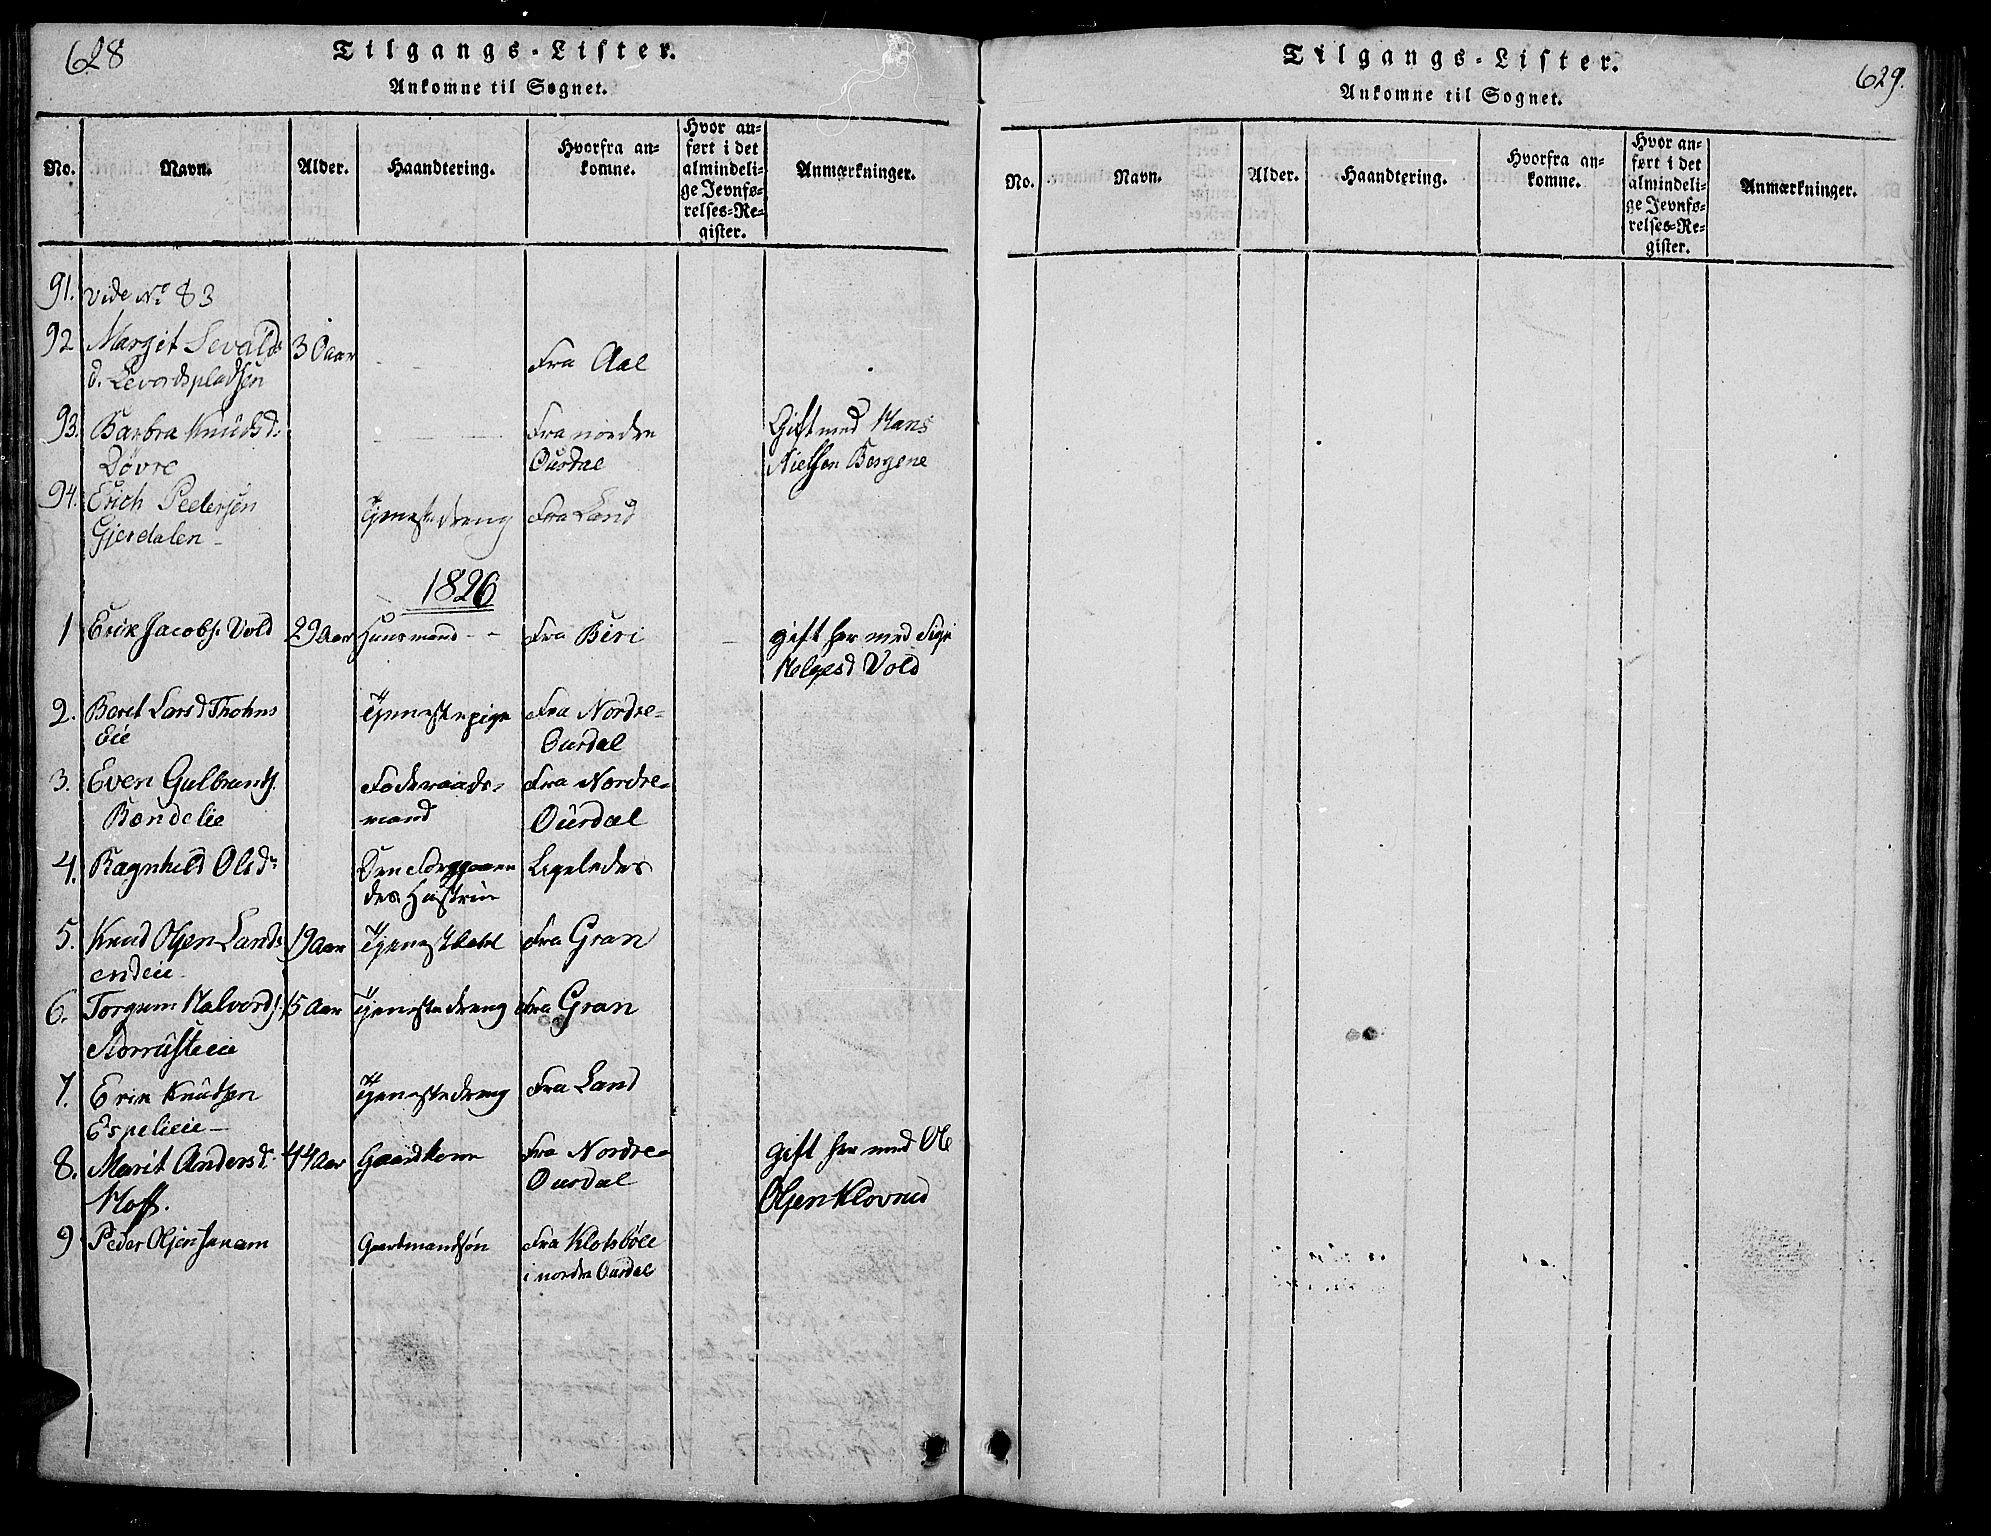 628
Tilgangs-Lister.
Ankomne til Sognet.
No. Navn. Alder. Haandtering. Hvorfra ankomne. Hvor anført i det almindelige Jevnførelses-Register. Anmærkninger.
91. vide No 83
92 Margit Sevalds 30 aar Fra Aal
d. Levordspladsen
93. Barbra Knudsd: Fra nordre Gift med Hans
Døvre Ourdal Nielsen Bergene
94. Erich Pedersøn Tjenestedreng Fra Land
Gjerdalen
1826
1 Erik Jacobs. Vold 29 Aar Huusmand Fra Biri gift her med Sigri
Helgesd Vold
2. Beret Larsd Thohns Tjenestepige Fra Nordre-
Eie Ourdal
3. Even Gulbrands. Føderaads- Fra Nordre-
Bøndelie mand Ourdal
4. Ragnhild Olsd Den foregaaen Ligeledes
des Hustrue
5. Knud Olsen Lands 19 Aar Tjenestkarl Fra Gran
endeie
6. Torgrim Halvords. 15 Aar Tjenestedreng Fra Gran
7. Erik Knudsen Tjenestedreng Fra Land
Espelieie
8. Marit Andersd. 44 Aar Gaardkone Fra Nordre- gift her med Ole
Hoff. Ourdal Olsen Klovrud
9 Peder Olsen Gaardmandsøn Fra Klotsbøle
i nordre Ourdal
629.
Tilgangs-Lister.
Ankomne til Sognet.
No. Navn. Alder. Haandtering. Hvorfra ankomne. Hvor anført i det almindelige Jevnførelses-Register. Anmærkninger.